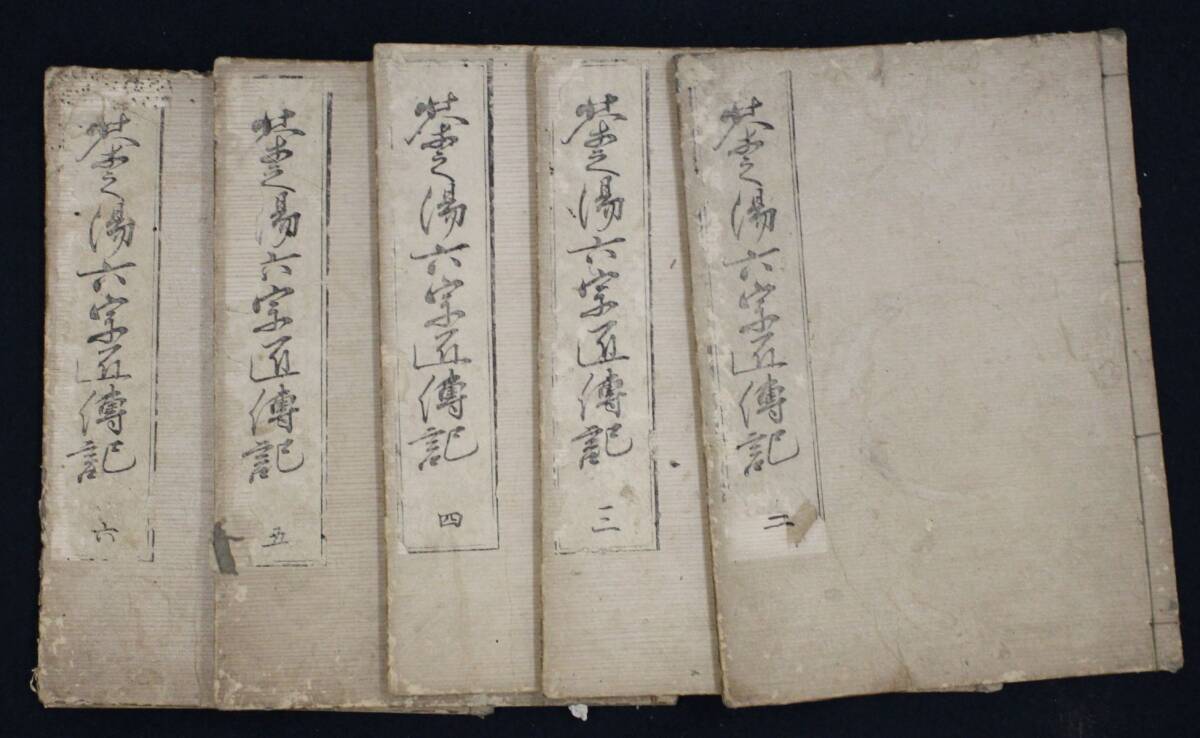 茶之湯六宗匠傳記 二
茶之湯六宗匠傳記 三
茶之湯六宗匠傳記 四
茶之湯六宗匠傳記 五
茶之湯六宗匠傳記 六